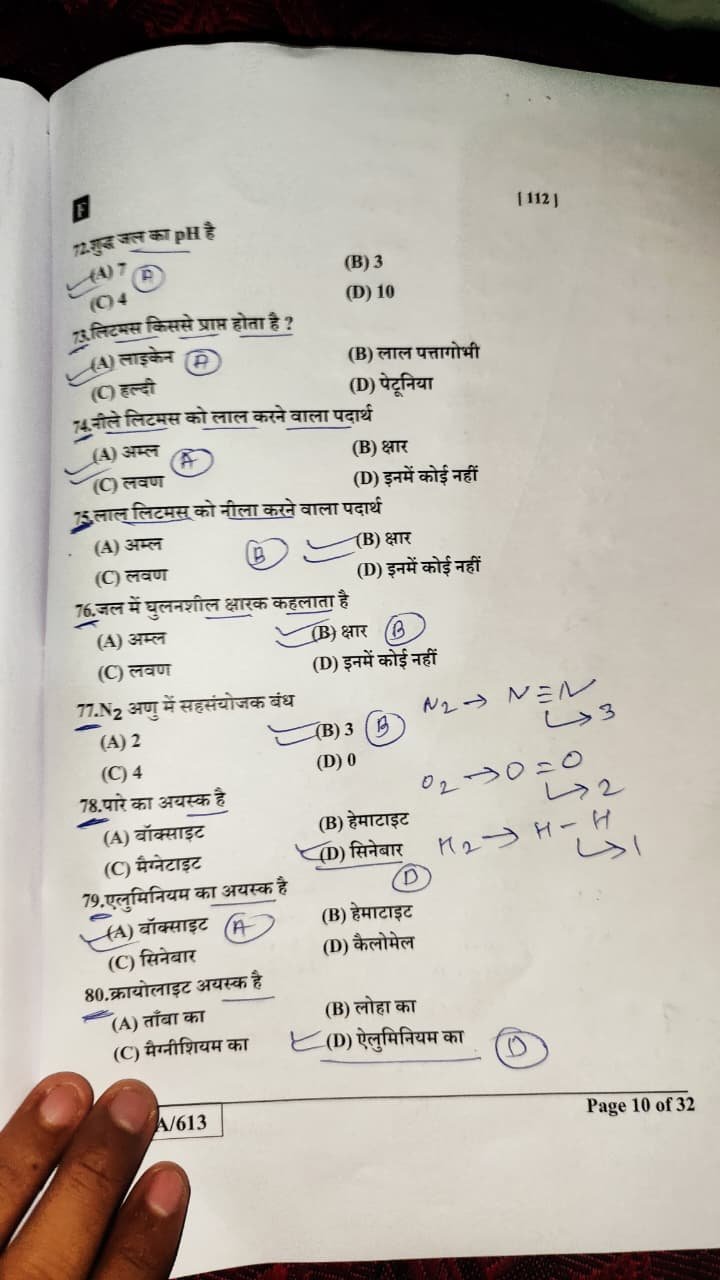 F
[ 112 ]
72.शुद्ध जल का pH है
(A) 7 A (B) 3
(C) 4 (D) 10
73.लिटमस किससे प्राप्त होता है ?
(A) लाइकेन A (B) लाल पत्तागोभी
(C) हल्दी (D) पेटूनिया
74.नीले लिटमस को लाल करने वाला पदार्थ
(A) अम्ल A (B) क्षार
(C) लवण (D) इनमें कोई नहीं
75.लाल लिटमस को नीला करने वाला पदार्थ
(A) अम्ल B (B) क्षार
(C) लवण (D) इनमें कोई नहीं
76.जल में घुलनशील क्षारक कहलाता है
(A) अम्ल (B) क्षार B
(C) लवण (D) इनमें कोई नहीं
77.N2 अणु में सहसंयोजक बंध
(A) 2 (B) 3 B
(C) 4 (D) 0
N2 → N≡N
↳ 3
O2 → O = O
↳ 2
H2 → H - H
↳ 1
78.पारे का अयस्क है
(A) बॉक्साइट (B) हेमाटाइट
(C) मैग्नेटाइट (D) सिनेबार
D
79.एलुमिनियम का अयस्क है
(A) बॉक्साइट A (B) हेमाटाइट
(C) सिनेबार (D) कैलोमेल
80.क्रायोलाइट अयस्क है
(A) ताँबा का (B) लोहा का
(C) मैग्नीशियम का (D) ऐलुमिनियम का D
A/613
Page 10 of 32